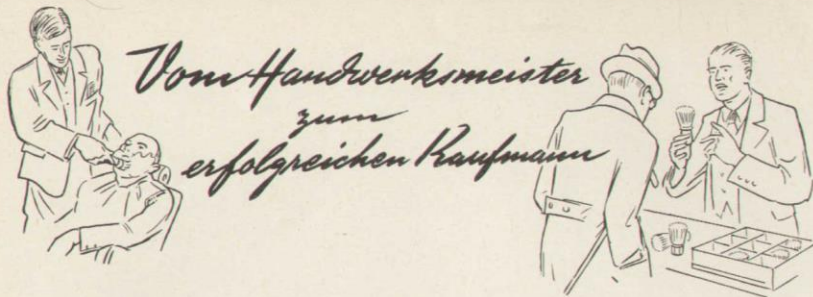 Vom Handwerksmeister
zum
erfolgreichen Kaufmann